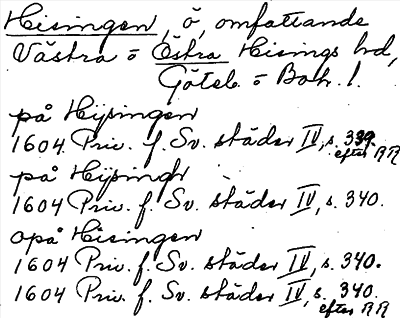 Hisingen, ö, omfattande
Västra o Östra Hisings hd,
Göteb. o Boh. l.
på Hijsingen
1604 Priv. f. Sv. städer IV, s. 339.
efter RR
på Hijsingh
1604 Priv. f. Sv. städer IV, s. 340.
opå Hisingen
1604 Priv. f. Sv. städer IV, s. 340.
1604 Priv. f. Sv. städer IV, s. 340.
efter RR